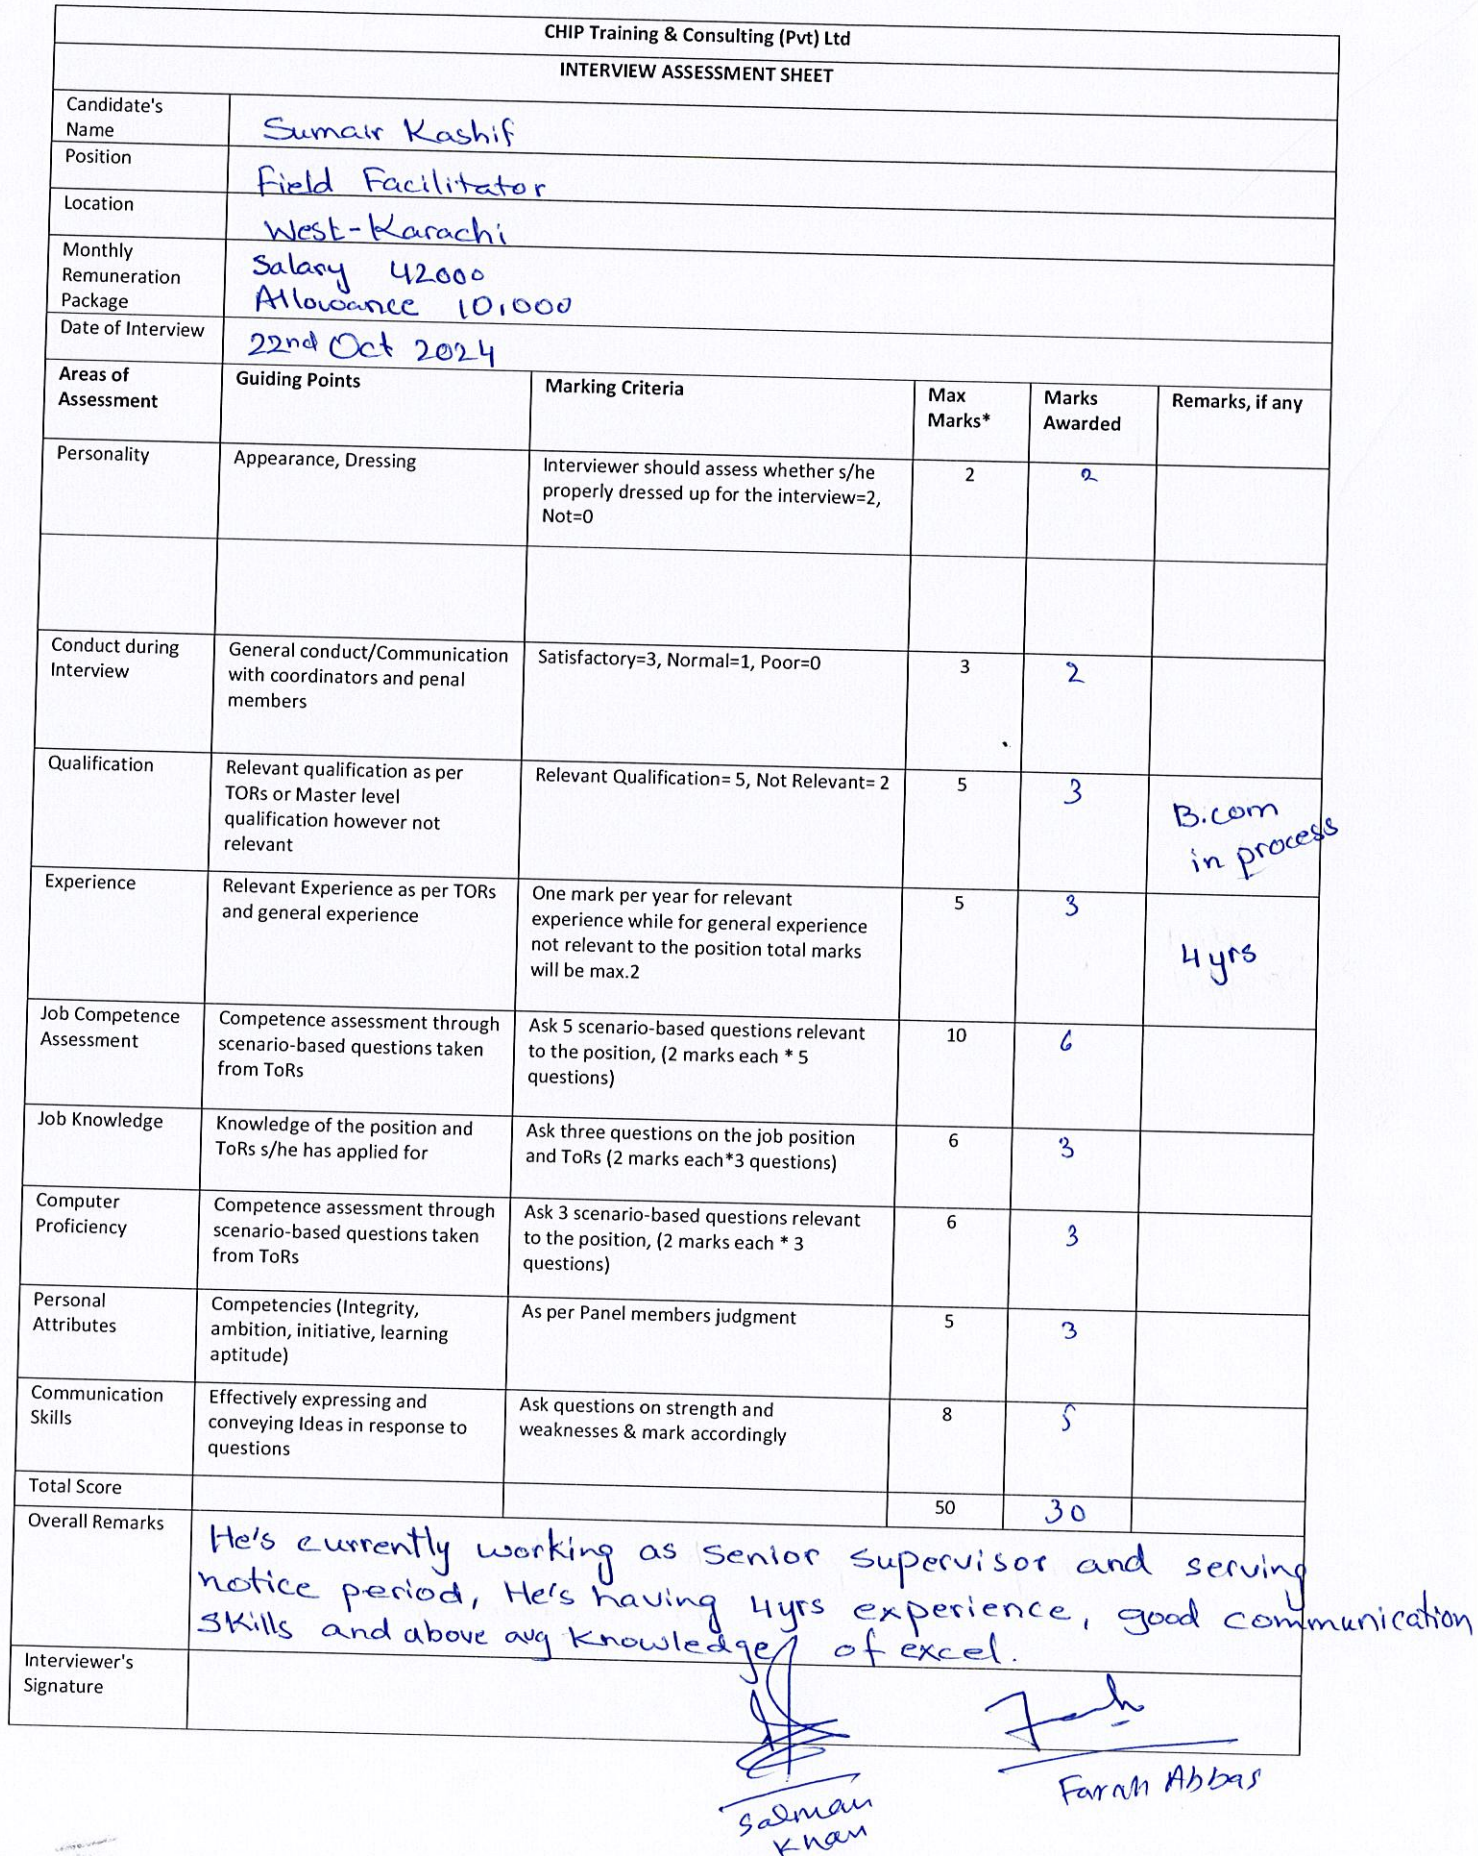 CHIP Training & Consulting (Pvt) Ltd
INTERVIEW ASSESSMENT SHEET
Candidate's
Name
Sumair Kashif
Position
Field Facilitator
Location
West-Karachi
Monthly
Remuneration
Package
Salary 42000
Allowance 10,000
Date of Interview
22nd Oct 2024
Areas of
Assessment
Guiding Points
Marking Criteria
Max
Marks*
Marks
Awarded
Remarks, if any
Personality
Appearance, Dressing
Interviewer should assess whether s/he
properly dressed up for the interview=2,
Not=0
2
2
Conduct during
Interview
General conduct/Communication
with coordinators and penal
members
Satisfactory=3, Normal=1, Poor=0
3
2
Qualification
Relevant qualification as per
TORs or Master level
qualification however not
relevant
Relevant Qualification= 5, Not Relevant= 2
5
3
B.com
in process
Experience
Relevant Experience as per TORs
and general experience
One mark per year for relevant
experience while for general experience
not relevant to the position total marks
will be max.2
5
3
4 yrs
Job Competence
Assessment
Competence assessment through
scenario-based questions taken
from ToRs
Ask 5 scenario-based questions relevant
to the position, (2 marks each * 5
questions)
10
6
Job Knowledge
Knowledge of the position and
ToRs s/he has applied for
Ask three questions on the job position
and ToRs (2 marks each*3 questions)
6
3
Computer
Proficiency
Competence assessment through
scenario-based questions taken
from ToRs
Ask 3 scenario-based questions relevant
to the position, (2 marks each * 3
questions)
6
3
Personal
Attributes
Competencies (Integrity,
ambition, initiative, learning
aptitude)
As per Panel members judgment
5
3
Communication
Skills
Effectively expressing and
conveying Ideas in response to
questions
Ask questions on strength and
weaknesses & mark accordingly
8
5
Total Score
50
30
Overall Remarks
He's currently working as senior supervisor and serving
notice period, He's having 4yrs experience, good communication
skills and above avg knowledge of excel.
Interviewer's
Signature
Salman
Khan
Farah Abbas